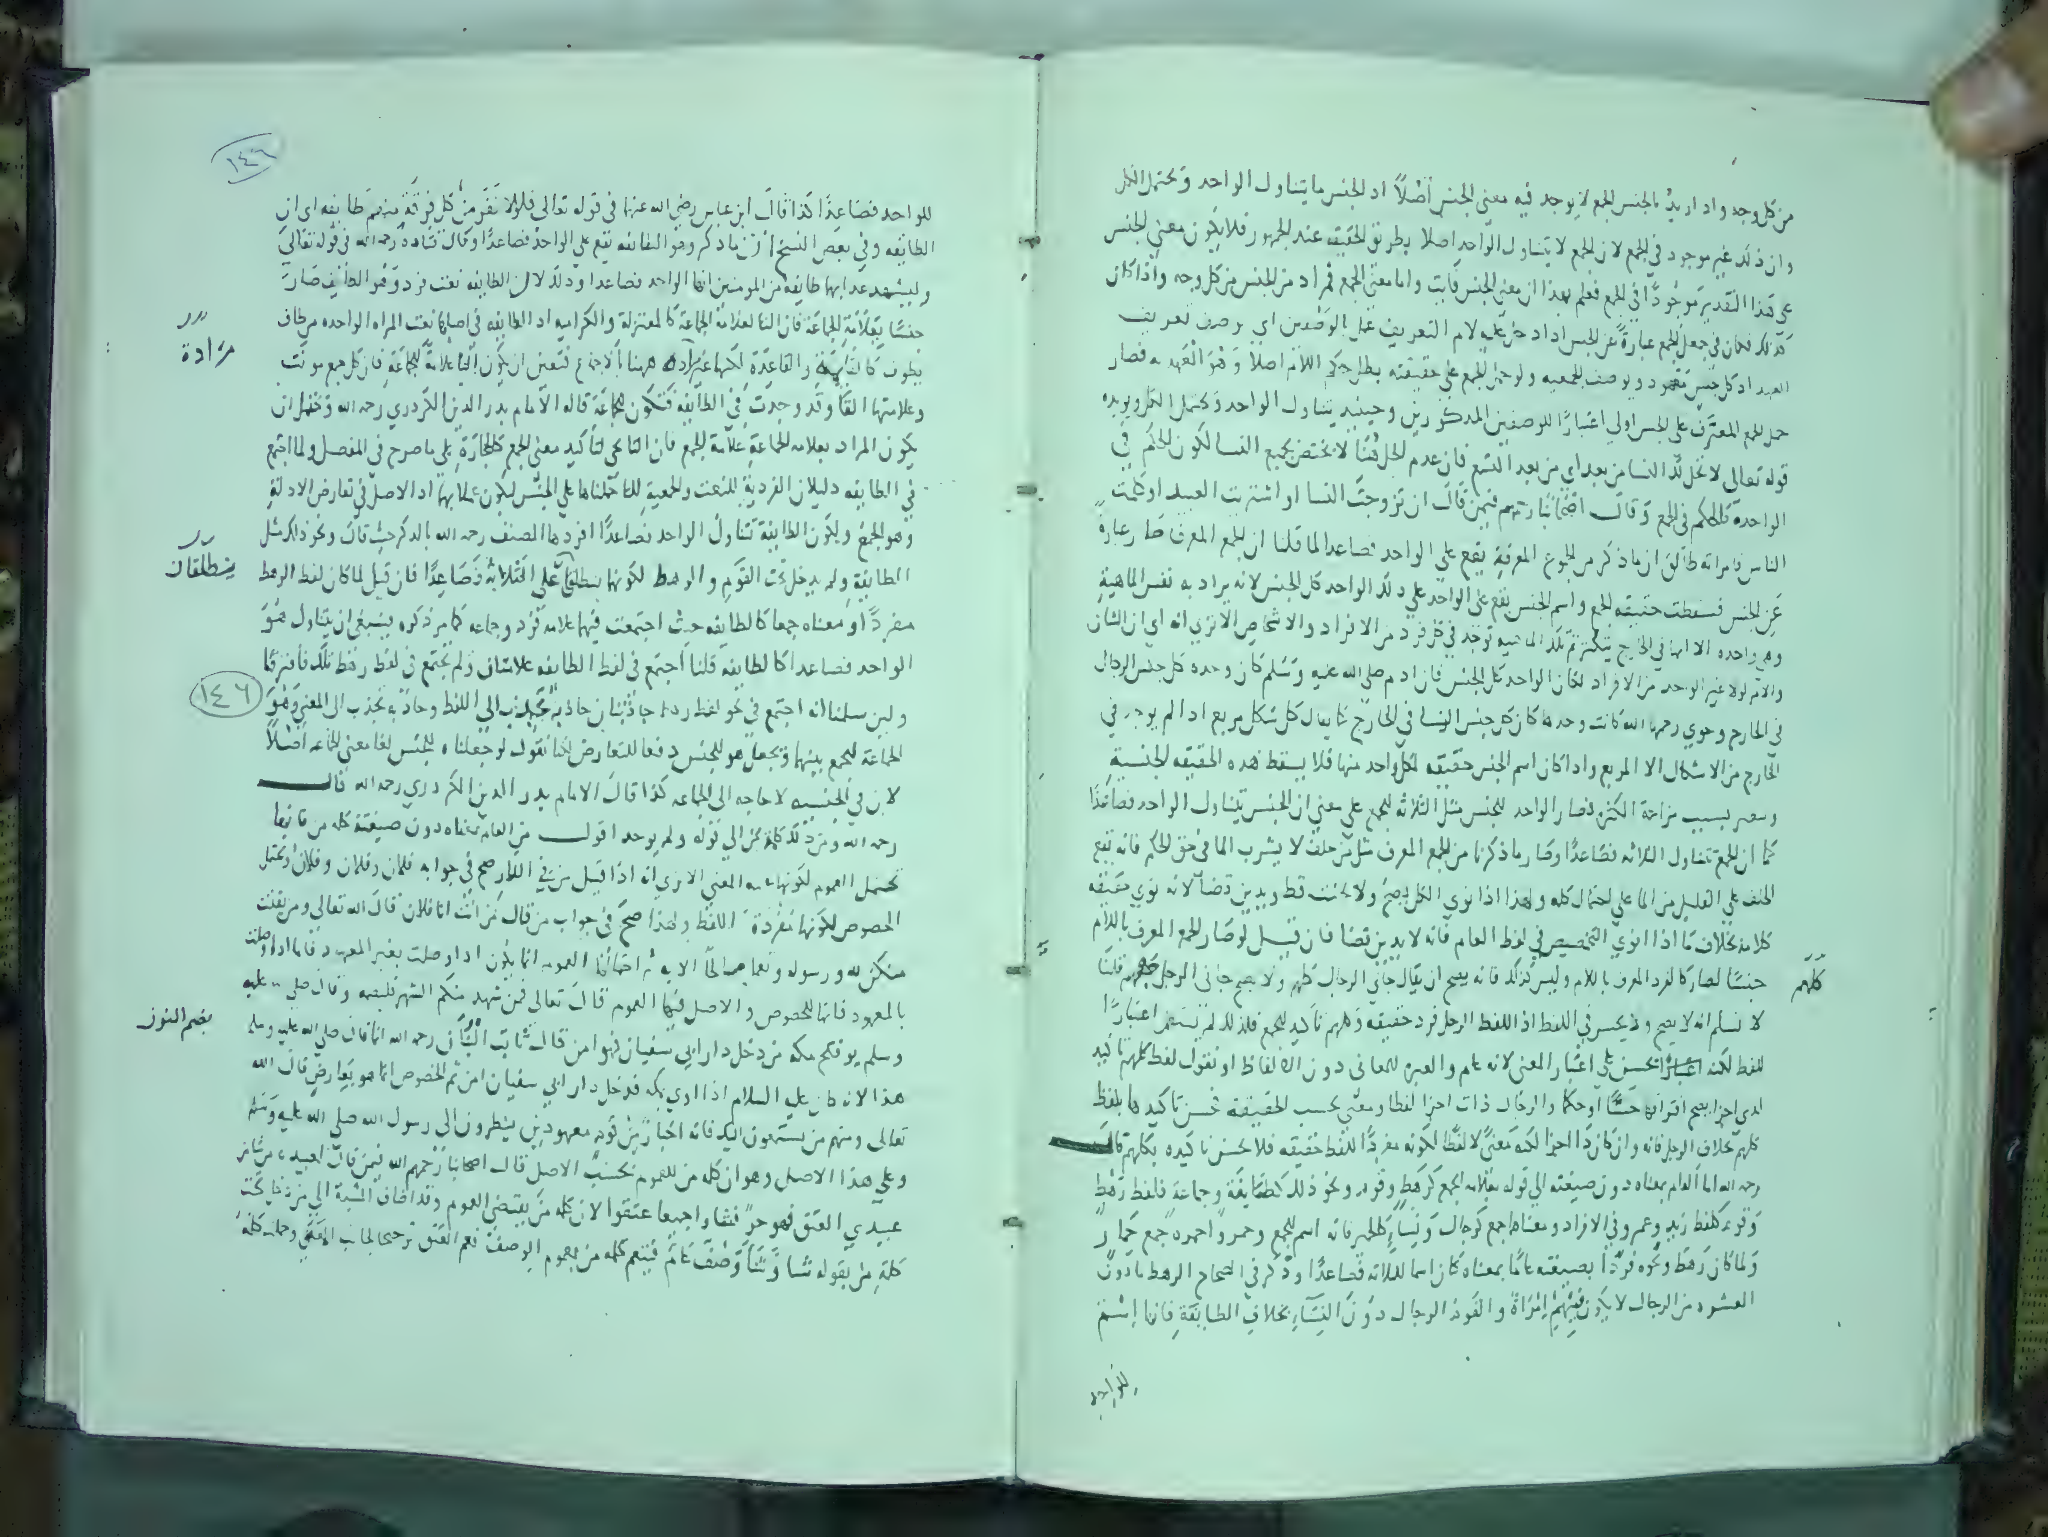 من كل وجه واذا اريد بالجنس الجمع لا يوجد فيه معنى الجنس اصلاً اذ الجنس ما يتناول الواحد ويحتمل الكل
وان ذلك غير موجود في الجمع لان الجمع لا يتناول الواحد اصلا بطريق الحقيقه عند الجمهور فلا يكون معنى الجنس
على هذا التقدير موجودًا في الجمع فعلم بهذا ان معنى الجنس ثابت واما معنى الجمع فمراد من الجنس من كل وجه واذا كان
كذلك فكان في جعل الجمع عبارةً عن الجنس اذا دخل عليه لام التعريف عمل بالوصفين اي بوصف تعريف
العهد اذ كل جنس معهود وبوصف الجمعيه ولو حمل الجمع على حقيقته بطل حكم اللام اصلا وهو العهد فصار
حمل الجمع المعرف على الجنس اولى اعتبارًا للوصفين المذكورين وحينيذ يتناول الواحد ويحتمل الكل ويويده
قوله تعالى لا تحل لك النسا من بعد اي من بعد التسع فان عدم الحل هنا لا يختص بجميع النسا لكون الحكم في
الواحدة كالحكم في الجمع وقال اصحابنا رحمهم فيمن قال ان تزوجت النسا او اشتريت العبيد او كلمت
الناس فامراته طالق ان ما ذكر من الجموع المعرفة يقع على الواحد فصاعدا لما قلنا ان الجمع المعرف صار عبارةً
عن الجنس فسقطت حقيقه الجمع واسم الجنس يقع على الواحد على ذلك الواحد كل الجنس لانه يراد به نفس الماهية
وهي واحده الا انها في الخارج يتكثر ثم تلك الماهيه توجد في كل فرد من الافراد والاشخاص الا ترى انه اي ان الشان
والامر لولا غير الواحد من الافراد لكان الواحد كل الجنس فان ادم صلى الله عليه وسلم كان وحده كل جنس الرجال
في الخارج وحوى رحمها الله كانت وحدها كان كل جنس النسا في الخارج كما يقال كل شكل مربع اذا لم يوجد في
الخارج من الاشكال الا المربع واذا كان اسم الجنس حقيقه لكل واحد منها فلا يسقط هذه الحقيقه الجنسية
بسبب مزاحمة الكثره فصار الواحد للجنس مثل الثلاثه للجمع على معنى ان الجنس يتناول الواحد فصاعدًا
كما ان الجمع يتناول الثلاثه فصاعدًا وصار ما ذكرنا من الجمع المعرف مثل من حلف لا يشرب الما في حق الحكم فانه يقع
الحلف على القليل من الما على احتمال كله ولهذا اذا نوى الكل يصح ولا يحنث قط ويدين قضآ لانه نوى حقيقه
كلامه بخلاف ما اذا نوى التخصيص في لفظ العام فانه لا يدين قضا فان قيل لو صار الجمع المعرف باللام
جنسًا لصار كالفرد المعرف باللام وليس كذلك فانه يصح ان يقال جاني الرجال كلهم ولا يصح جاني الرجل كلهم قلنا
كلهم
لا نسلم انه لا يصح ولا يحسن في اللفظ اذ اللفظ الرجل فرد حقيقه وكلهم تاكيد للجمع فلذلك لم نستعمل اعتبارًا
للفظ لكنه يحسن على اعتبار المعنى لانه عام والعبره للمعانى دون الالفاظ او نقول لفظ كلهم تاكيد
لذى اجزا يصح افتراقها حسًّا او حكمًا والرجال ذات اجزا لفظا ومعنًى بحسب الحقيقة فحسن تاكيدها بلفظ
كلهم بخلاف الرجل فانه وان كان ذا اجزا لكنه معنىً لا لفظًا لكونه مفردًا للفظ حقيقه فلا يحسن تاكيده بكلهم قال
رحمه الله اما العام بمعناه دون صيغته الى قوله بعلامه الجمع كرهط وقوم ونحو ذلك كطايفة وجماعة فلفظ رهط
وقوم كلفظ زيد وعمرو في الافراد ومعناها جمع كرجال ونساءٍ كالحمر فانه اسم للجمع وحمر واحمرة جمع حمار
ولما كان رهط ونحوه فردًا بصيغته عامًا بمعناه كان اسما للثلاثه فصاعدًا وذكر في الصحاح الرهط ما دون
العشره من الرجال لا يكون فيهم امرأة والقوم الرجال دون النسآء بخلاف الطايفة فانها اسم
للواحد
١٤٦
للواحد فصاعدًا كذا قال ابن عباس رضي الله عنهما في قوله تعالى فلولا نفر من كل فرقة منهم طايفه اي ان
الطايفه وفي بعض النسخ ان ما ذكر وهو الطائفه يقع على الواحد فصاعدًا وكان قتادة رحمه الله في قوله تعالى
وليشهد عذابهما طايفة من المومنين انها الواحد فصاعدا وذلك لان الطايفه نعت فرد وهو الطايف صارت
جنسًا بعلامة الجماعة فان التا لعلامة الجماعة كالمعتزلة والكراميه اذ الطايفه في اصلها نعت المراه الواحده من طاف
يطوف والقاعدة لكنها غير مرادة ههنا بالاجماع فتعين ان يكون التا علامة للجماعة فان كل جمع مونث
مرادة
وعلامتها التا وقد وجدت في الطايفة فتكون للجماعة قاله الامام بدر الدين الكردري رحمه الله ويحتمل ان
يكون المراد بعلامه الجماعة علامة الجمع فان التا تجى لتاكيد معنى الجمع كالحجارة على ما صرح في المفصل ولما اجتمع
في الطايفه دليلان الفردية بالنعت والجمعية للتا حملناها على الجنس ليكون عملا بهما اذ الاصل في تعارض الادلة
وهو الجمع ولكون الطايفة تتناول الواحد فصاعدًا افردها المصنف رحمه الله بالذكر حيث قال ونحو ذلك مثل
الطايفة ولم يدخل تحت القوم والرهط لكونها ينطلقان على الثلاثة فصاعدًا فان قيل لما كان لفظ الرهط
ينطلقان
مفردًا ومعناه جمعا كالطايفه حيث اجتمعت فيها علامه فرد وجماعه كما مر ذكره فينبغى ان يتناول هو
الواحد فصاعدا كالطايفه قلنا اجتمع في لفظ الطايفه علامتان ولم يجتمع في لفظ رهط تلك فافترقا
١٤٦
ولين سلمنا انه اجتمع في نحو لفظ رهط جاذبتان جاذبة تجذب الى اللفظ وجاذبة تجذب الى المعنى وهو
الجماعة للجمع بينهما ويجعل هو للجنس دفعا للتعارض لكنا نقول لو جعلناه للجنس لغا معنى الجماعه اصلاً
لان في الجنسيه لا حاجه الى الجماعه كذا قال الامام بدر الدين الكردرى رحمه الله قال
رحمه الله ومن ذلك كلمة من الى قوله ولم يوجد اقول من العام بمعناه دون صيغته كلمه من فانها
تحتمل العموم لكونها عامه المعنى الا ترى انه اذا قيل من في الدار صح في جوابه فلان وفلان وفلان ويحتمل
الخصوص لكونها مفردة اللفظ ولهذا صح في جواب من قال من انت انا فلان قال الله تعالى ومن يقنت
منكن لله ورسوله وتعمل صالحًا الايه ثم احتمالها العموم انما يكون اذا وصلت بغير المعهود فاما اذا وصلت
بالمعهود فانها للخصوص والاصل فيها العموم قال تعالى فمن شهد منكم الشهر فليصمه وقال صلى الله عليه
وسلم يوم فتح مكه من دخل دار ابي سفيان فهو امن قال ثابت البُنانى رحمه الله انما قال صلى الله عليه وسلم
بضم النون
هذا لانه كان عليه السلام اذا اوذي بمكه فدخل دار ابي سفيان امن ثم الخصوص انما هو بعوارض قال الله
تعالى ومنهم من يستمعون اليك فانه اخبار عن قوم معهودين ينظرون الى رسول الله صلى الله عليه وسلم
وعلى هذا الاصل وهو ان كلمه من للعموم بحسب الاصل قال اصحابنا رحمهم الله فيمن قال لعبيده من شاء من
عبيدي العتق فهو حرّ فشاءوا جميعا عتقوا لان كلمه من يقتضى العموم وقد اضاف المشية الى من دخل تحت
كلمة من بقوله شا وشآ وصف عام فيتعم كلمه من بعموم الوصف فعم العتق ترجيحا لجانب المعنى وحملت كلمة